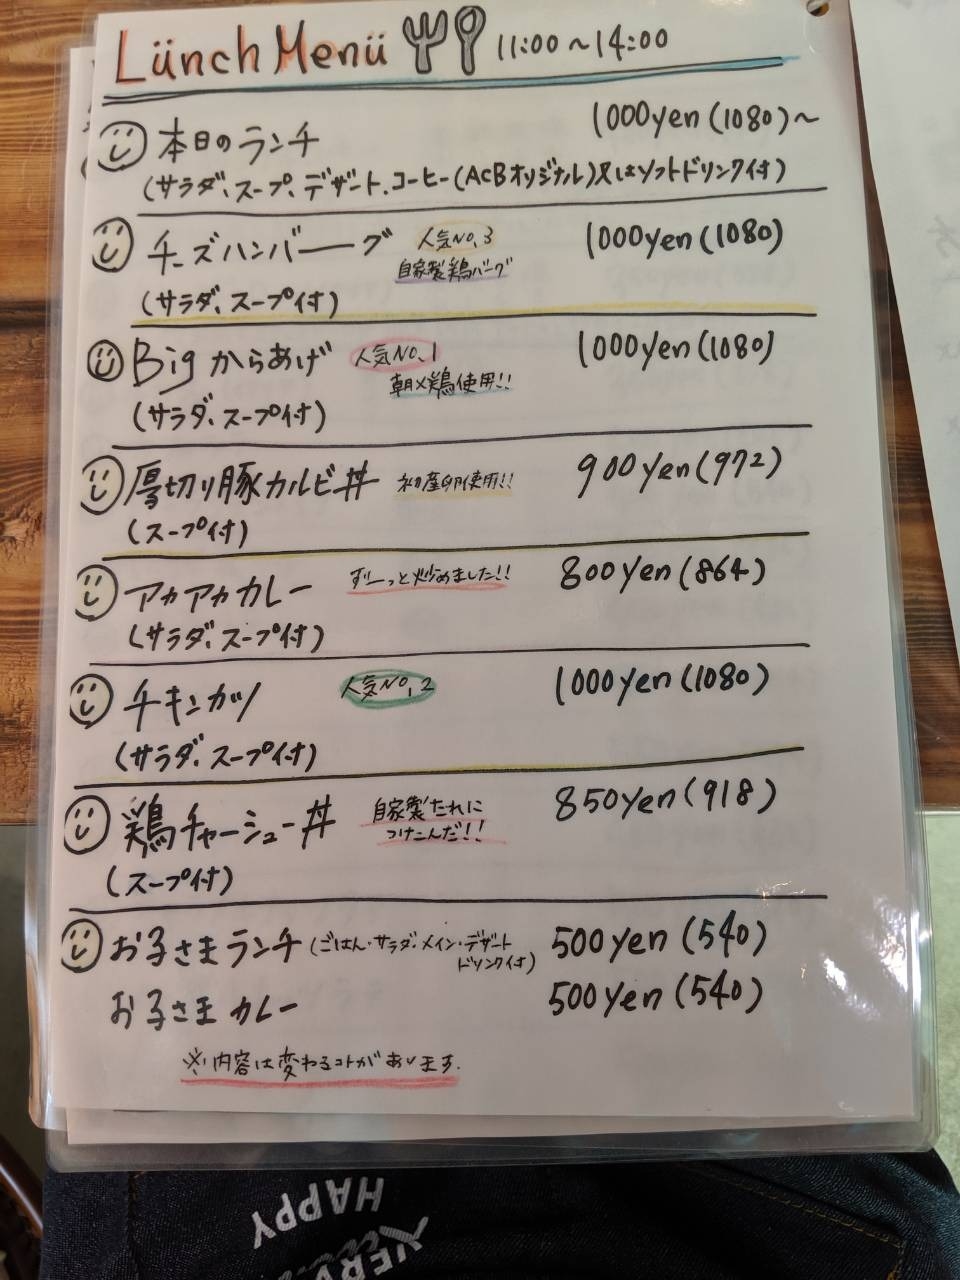 Lünch Menü 11:00～14:00
本日のランチ 1000yen(1080)～
(サラダ、スープ、デザート、コーヒー(AcBオリジナル)又はソフトドリンク付)
チーズハンバーグ 人気No.3 1000yen(1080)
自家製鶏バーグ
(サラダ、スープ付)
Big からあげ 人気No.1 1000yen(1080)
朝〆鶏使用!!
(サラダ、スープ付)
厚切り豚カルビ丼 初産卵使用!! 900yen(972)
(スープ付)
アカアカカレー ずーっと炒めました!! 800yen(864)
(サラダ、スープ付)
チキンカツ 人気No.2 1000yen(1080)
(サラダ、スープ付)
鶏チャーシュー丼 自家製たれに 850yen(918)
つけこんだ!!
(スープ付)
お子さまランチ (ごはん・サラダ・メイン・デザート 500yen(540)
ドリンク付)
お子さまカレー 500yen(540)
※内容は変わるコトがあります.
HAPPY